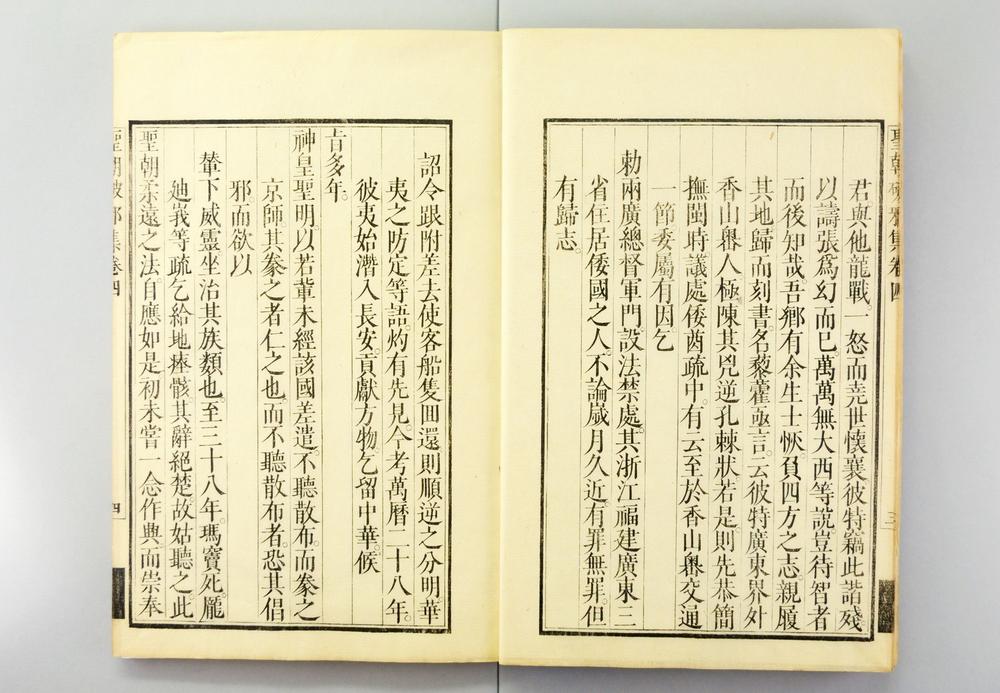 聖朝破邪集卷四 三
君與他龍戰。一怒而堯世懷襄彼特竊此諧殘
以譸張爲幻而巳萬萬無大西等說豈待智者
而後知哉。吾鄉有余生士恢負四方之志。親履
其地。歸而刻書。名藜藿亟言。云彼特廣東界外
香山嶴人極陳其兇逆孔棘狀若是。則先恭簡
撫閩時議處倭酋疏中。有云至於香山嶴交通
一節委屬有因乞
勑兩廣總督軍門設法禁處。其浙江福建廣東三
省住居倭國之人。不論嵗月久近有罪無罪。但
有歸志。
詔令跟附差去使客船隻囬還則順逆之分明華
夷之防定等語。灼有先見。今考萬曆二十八年。
彼夷始潛入長安。貢獻方物乞留中華。候
旨多年。
神皇聖明以若輩未經該國差遣。不聽散布。而豢之
京師其豢之者仁之也。而不聽散布者。恐其倡
邪而欲以
輦下威靈坐治其族類也。至三十八年。瑪竇死。龎
廸我等疏乞給地瘞骸其辭絕楚。故姑聽之此
聖朝柔遠之法自應如是初未嘗一念作興而崇奉
聖朝破邪集卷四 四